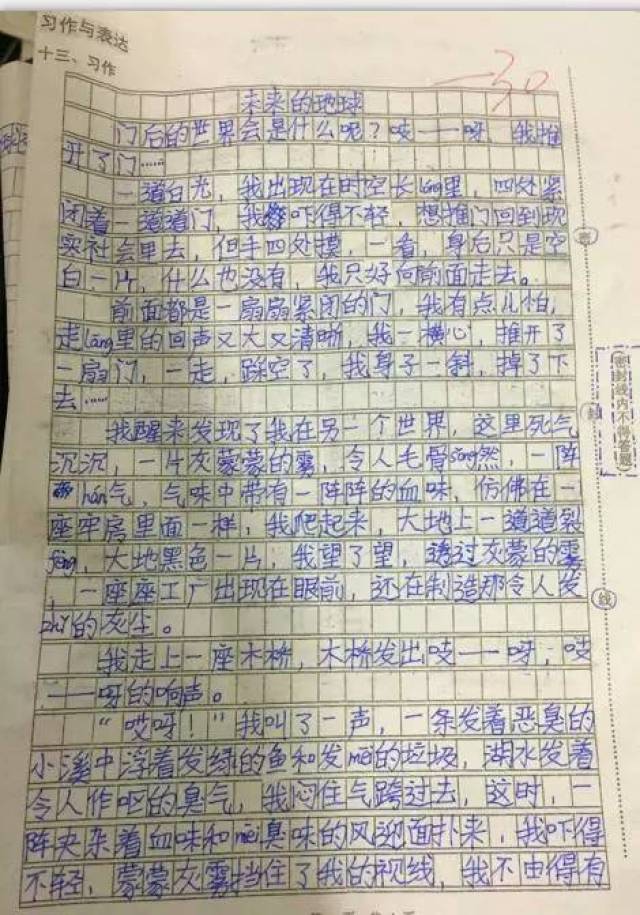 习作与表达
十三、习作
30
未来的地球
门后的世界会是什么呢？吱——呀，我推
开了门……
一道白光，我出现在时空长láng里，四处紧
闭着一道道门，我吓得不轻，想推门回到现
实社会里去，但手四处摸，一看，身后只是空
白一片，什么也没有，我只好向前面走去。
前面都是一扇扇紧闭的门，我有点儿怕，
走láng里的回声又大又清晰，我一横心，推开了
一扇门，一走，踩空了，我身子一斜，掉了下
去……
我醒来发现了我在另一个世界，这里死气
沉沉，一片灰蒙蒙的雾，令人毛骨sǒng然，一阵
hán气，气味中带有一阵阵的血味，仿佛在一
座牢房里面一样，我爬起来，大地上一道道裂
fèng，大地黑色一片，我望了望，透过灰蒙的雾
，一座座工厂出现在眼前，还在制造那令人发
zhǐ的灰尘。
我走上一座木桥，木桥发出吱——呀，吱
——呀的响声。
“哎呀！”我叫了一声，一条发着恶臭的
小溪中浮着发绿的鱼和发méi的垃圾，湖水发着
令人作呕的臭气，我闷住气跨过去，这时，一
阵夹杂着血味和méi臭味的风迎面扑来，我吓得
不轻，蒙蒙灰雾挡住了我的视线，我不由得有
密
封
线
密封线内不得答题